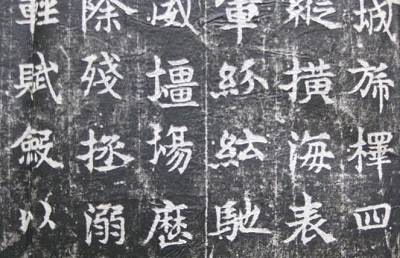 城旆擇四
縱橫海表
軍紛紜馳
威壃場歷
除殘拯溺
輕賦斂以